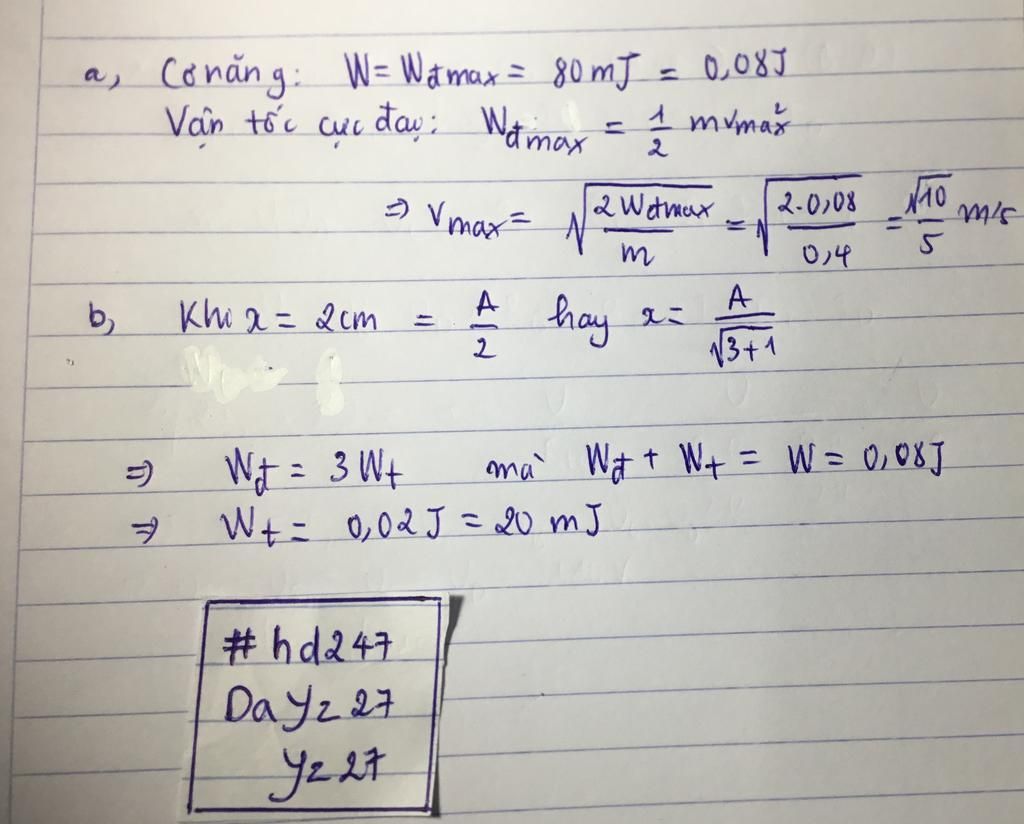 a, Cơ năng: W = Wđmax = 80mJ = 0,08J
Vận tốc cực đại: Wđmax = 1/2 mvmax²
⇒ vmax = √(2Wđmax/m) = √(2.0,08/0,4) = √10/5 m/s
b, Khi x = 2cm = A/2 hay x = A/√(3+1)
⇒ Wđ = 3Wt mà Wđ + Wt = W = 0,08J
⇒ Wt = 0,02J = 20 mJ
#hd247
DaYz27
Yz27